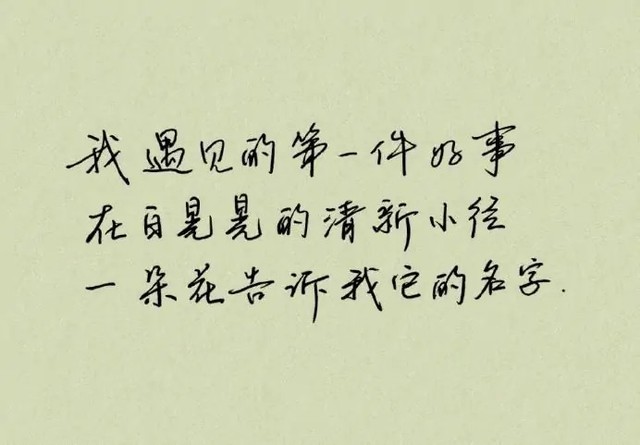 我遇见的第一件好事
在白晃晃的清新小径
一朵花告诉我它的名字.